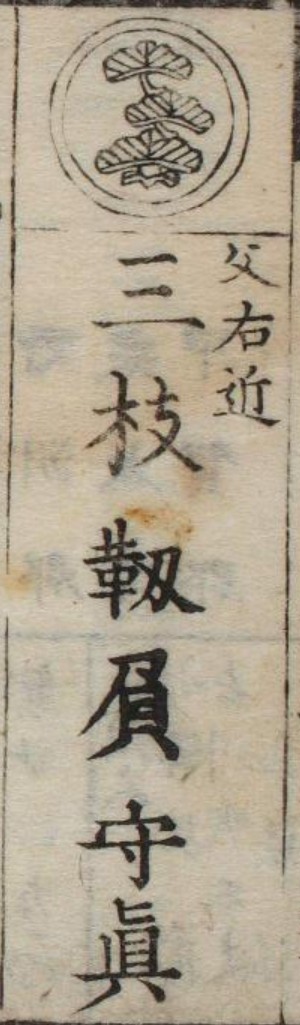 父右近
三枝靱負守眞